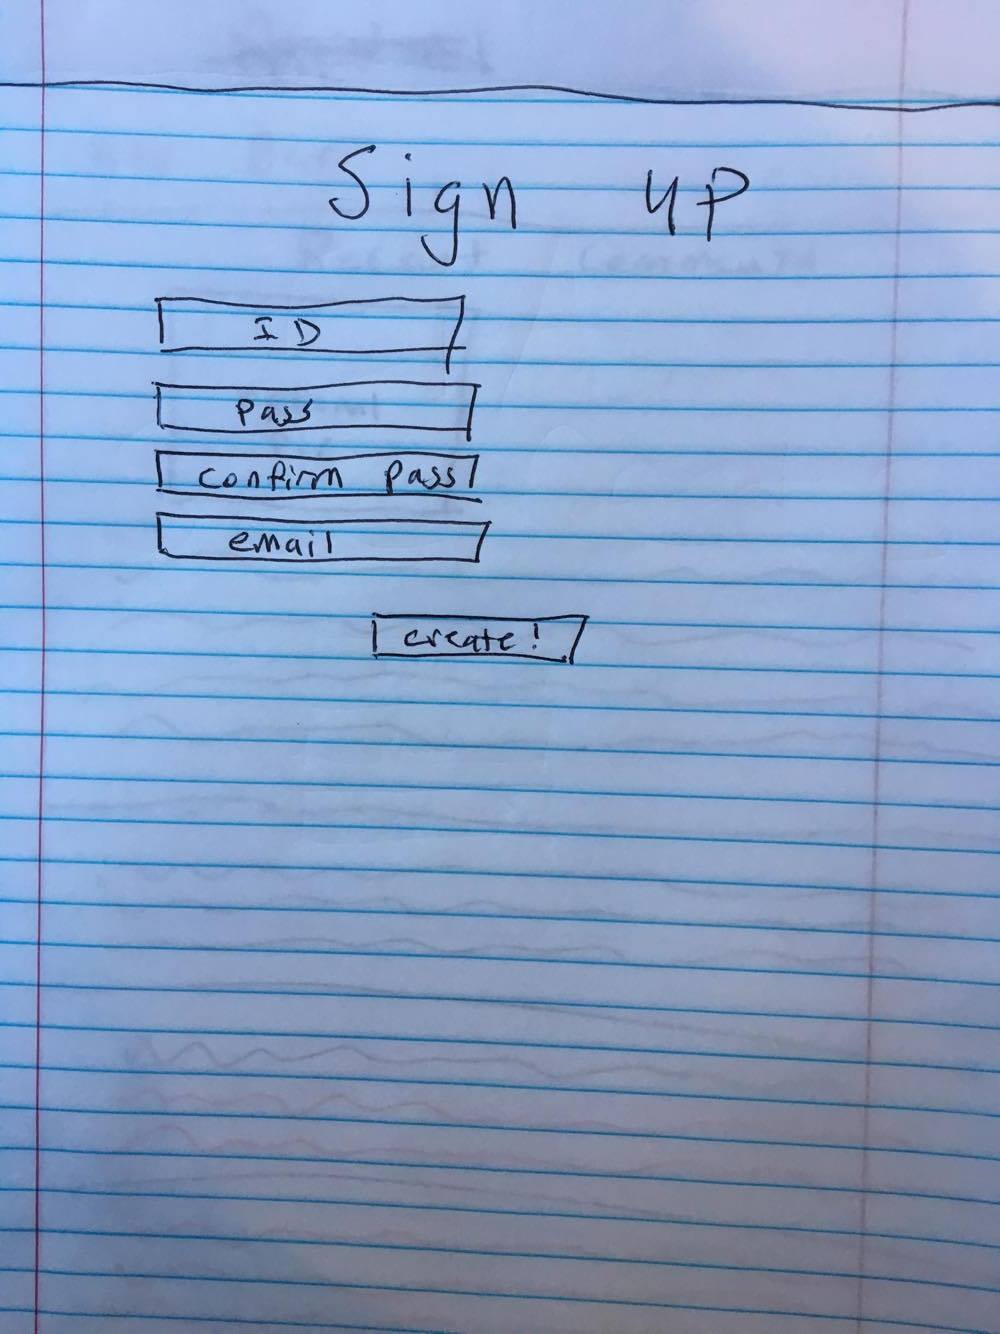 Sign up
ID
pass
confirm pass
email
create!